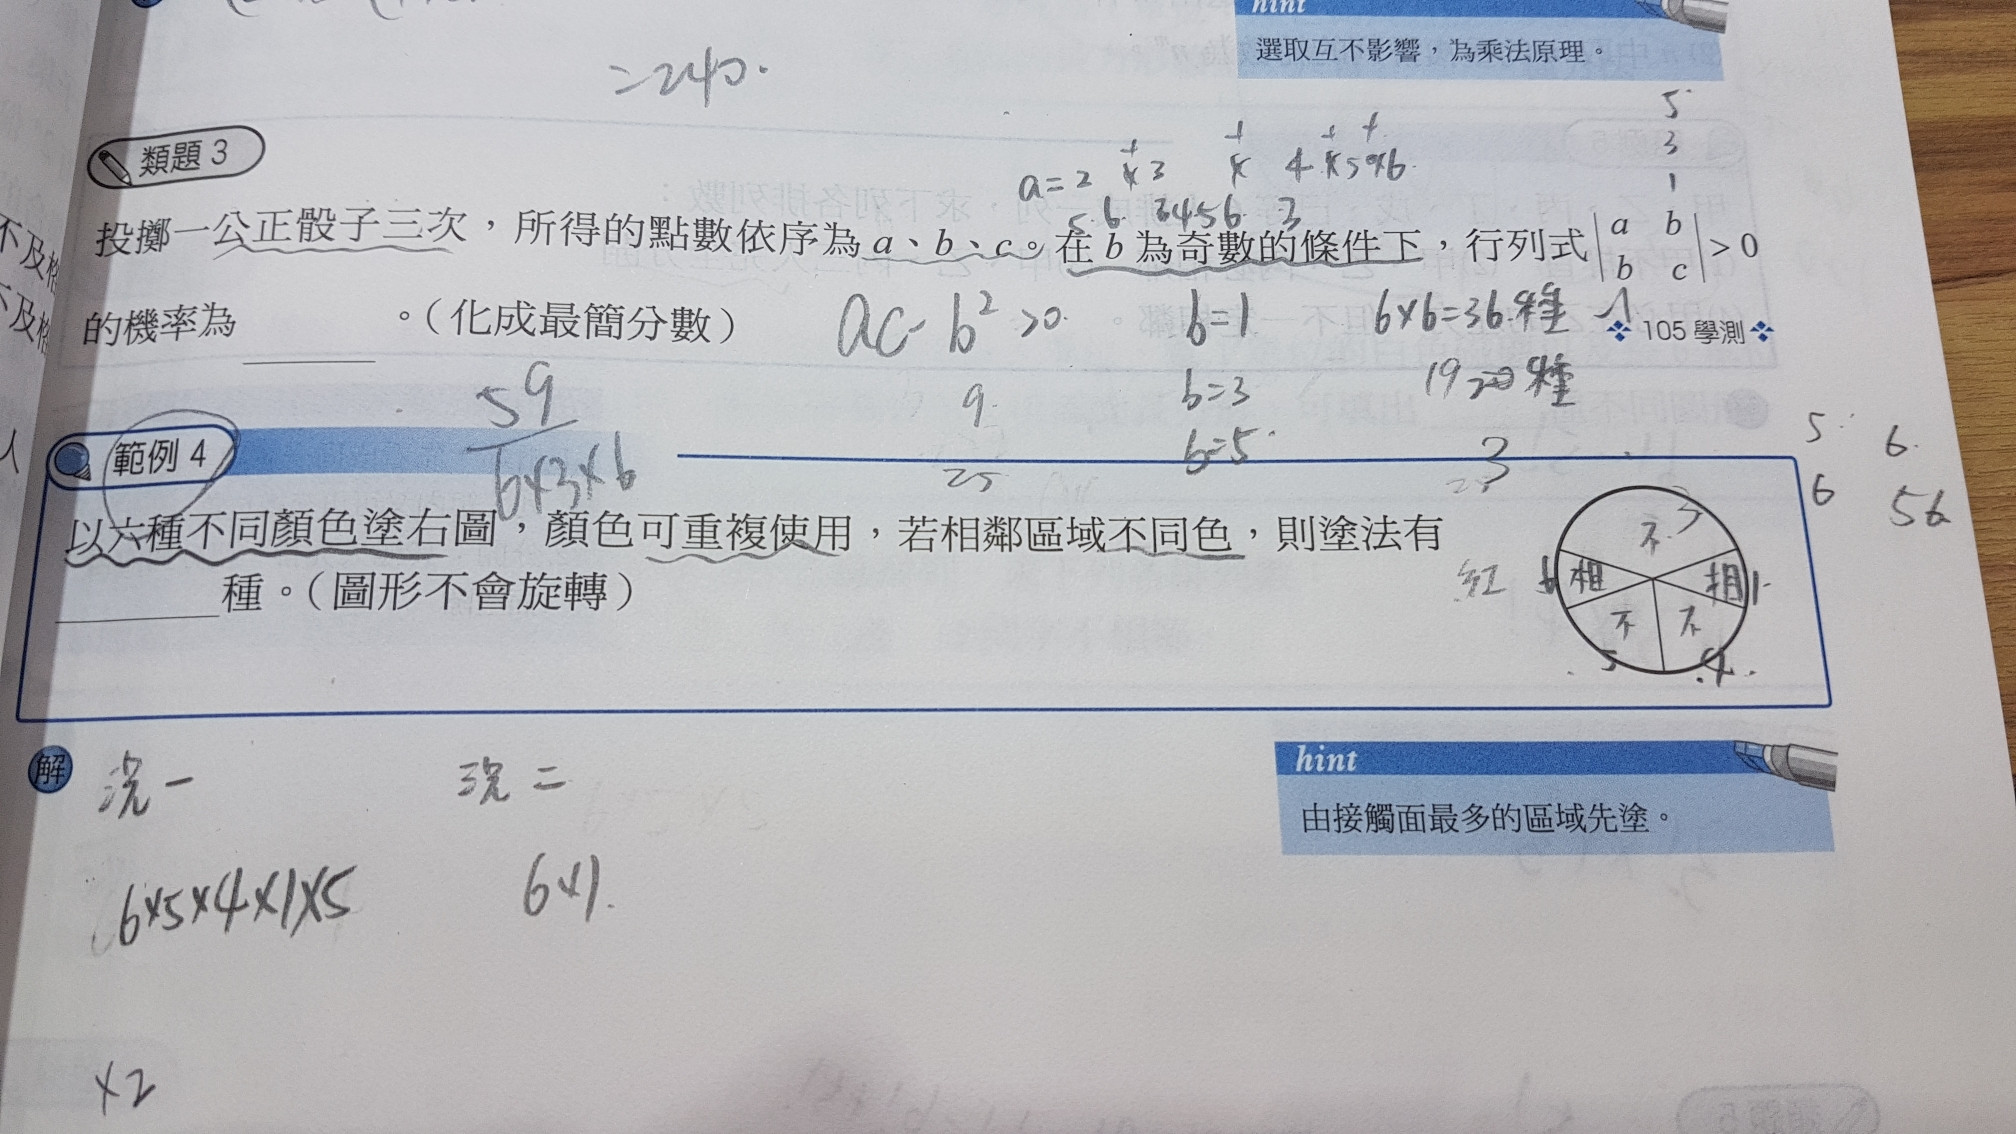 hint
選取互不影響，為乘法原理。
=240.
類題 3
5
3
1
a=2
投擲一公正骰子三次，所得的點數依序為 a、b、c。在 b 為奇數的條件下，行列式 | a b b c | > 0
的機率為______。（化成最簡分數）
ac-b²>0
b=1
6×6=36種-1
❖ 105 學測 ❖
b=3
b=5
3
9
25
59
6×3×6
5 6
6 56
範例 4
以六種不同顏色塗右圖，顏色可重複使用，若相鄰區域不同色，則塗法有
______種。（圖形不會旋轉）
紅
不
相
相
不
不
5
4
解
hint
由接觸面最多的區域先塗。
6×5×4×1×5
6×1
×2